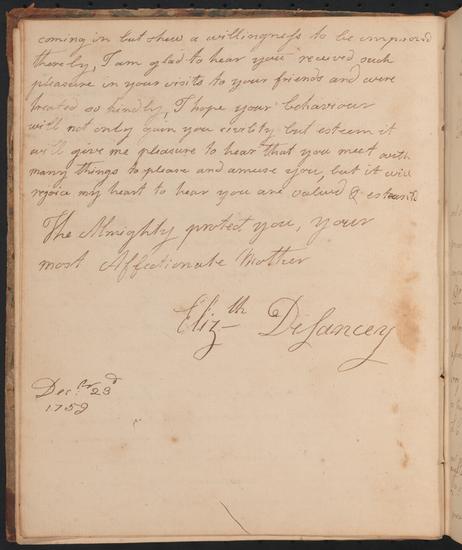 coming in but shew a willingness to be improved
thereby, I am glad to hear you received such
pleasure in your visits to your friends and were
treated so kindly, I hope your behaviour
will not only gain you civility but esteem it
will give me pleasure to hear that you meet with
many things to please and amuse you, but it will
rejoice my heart to hear you are valued & esteem'd
The Almighty protect you, your
most Affectionate Mother
Eliz-th DeLancey
Dec.br 23d
175